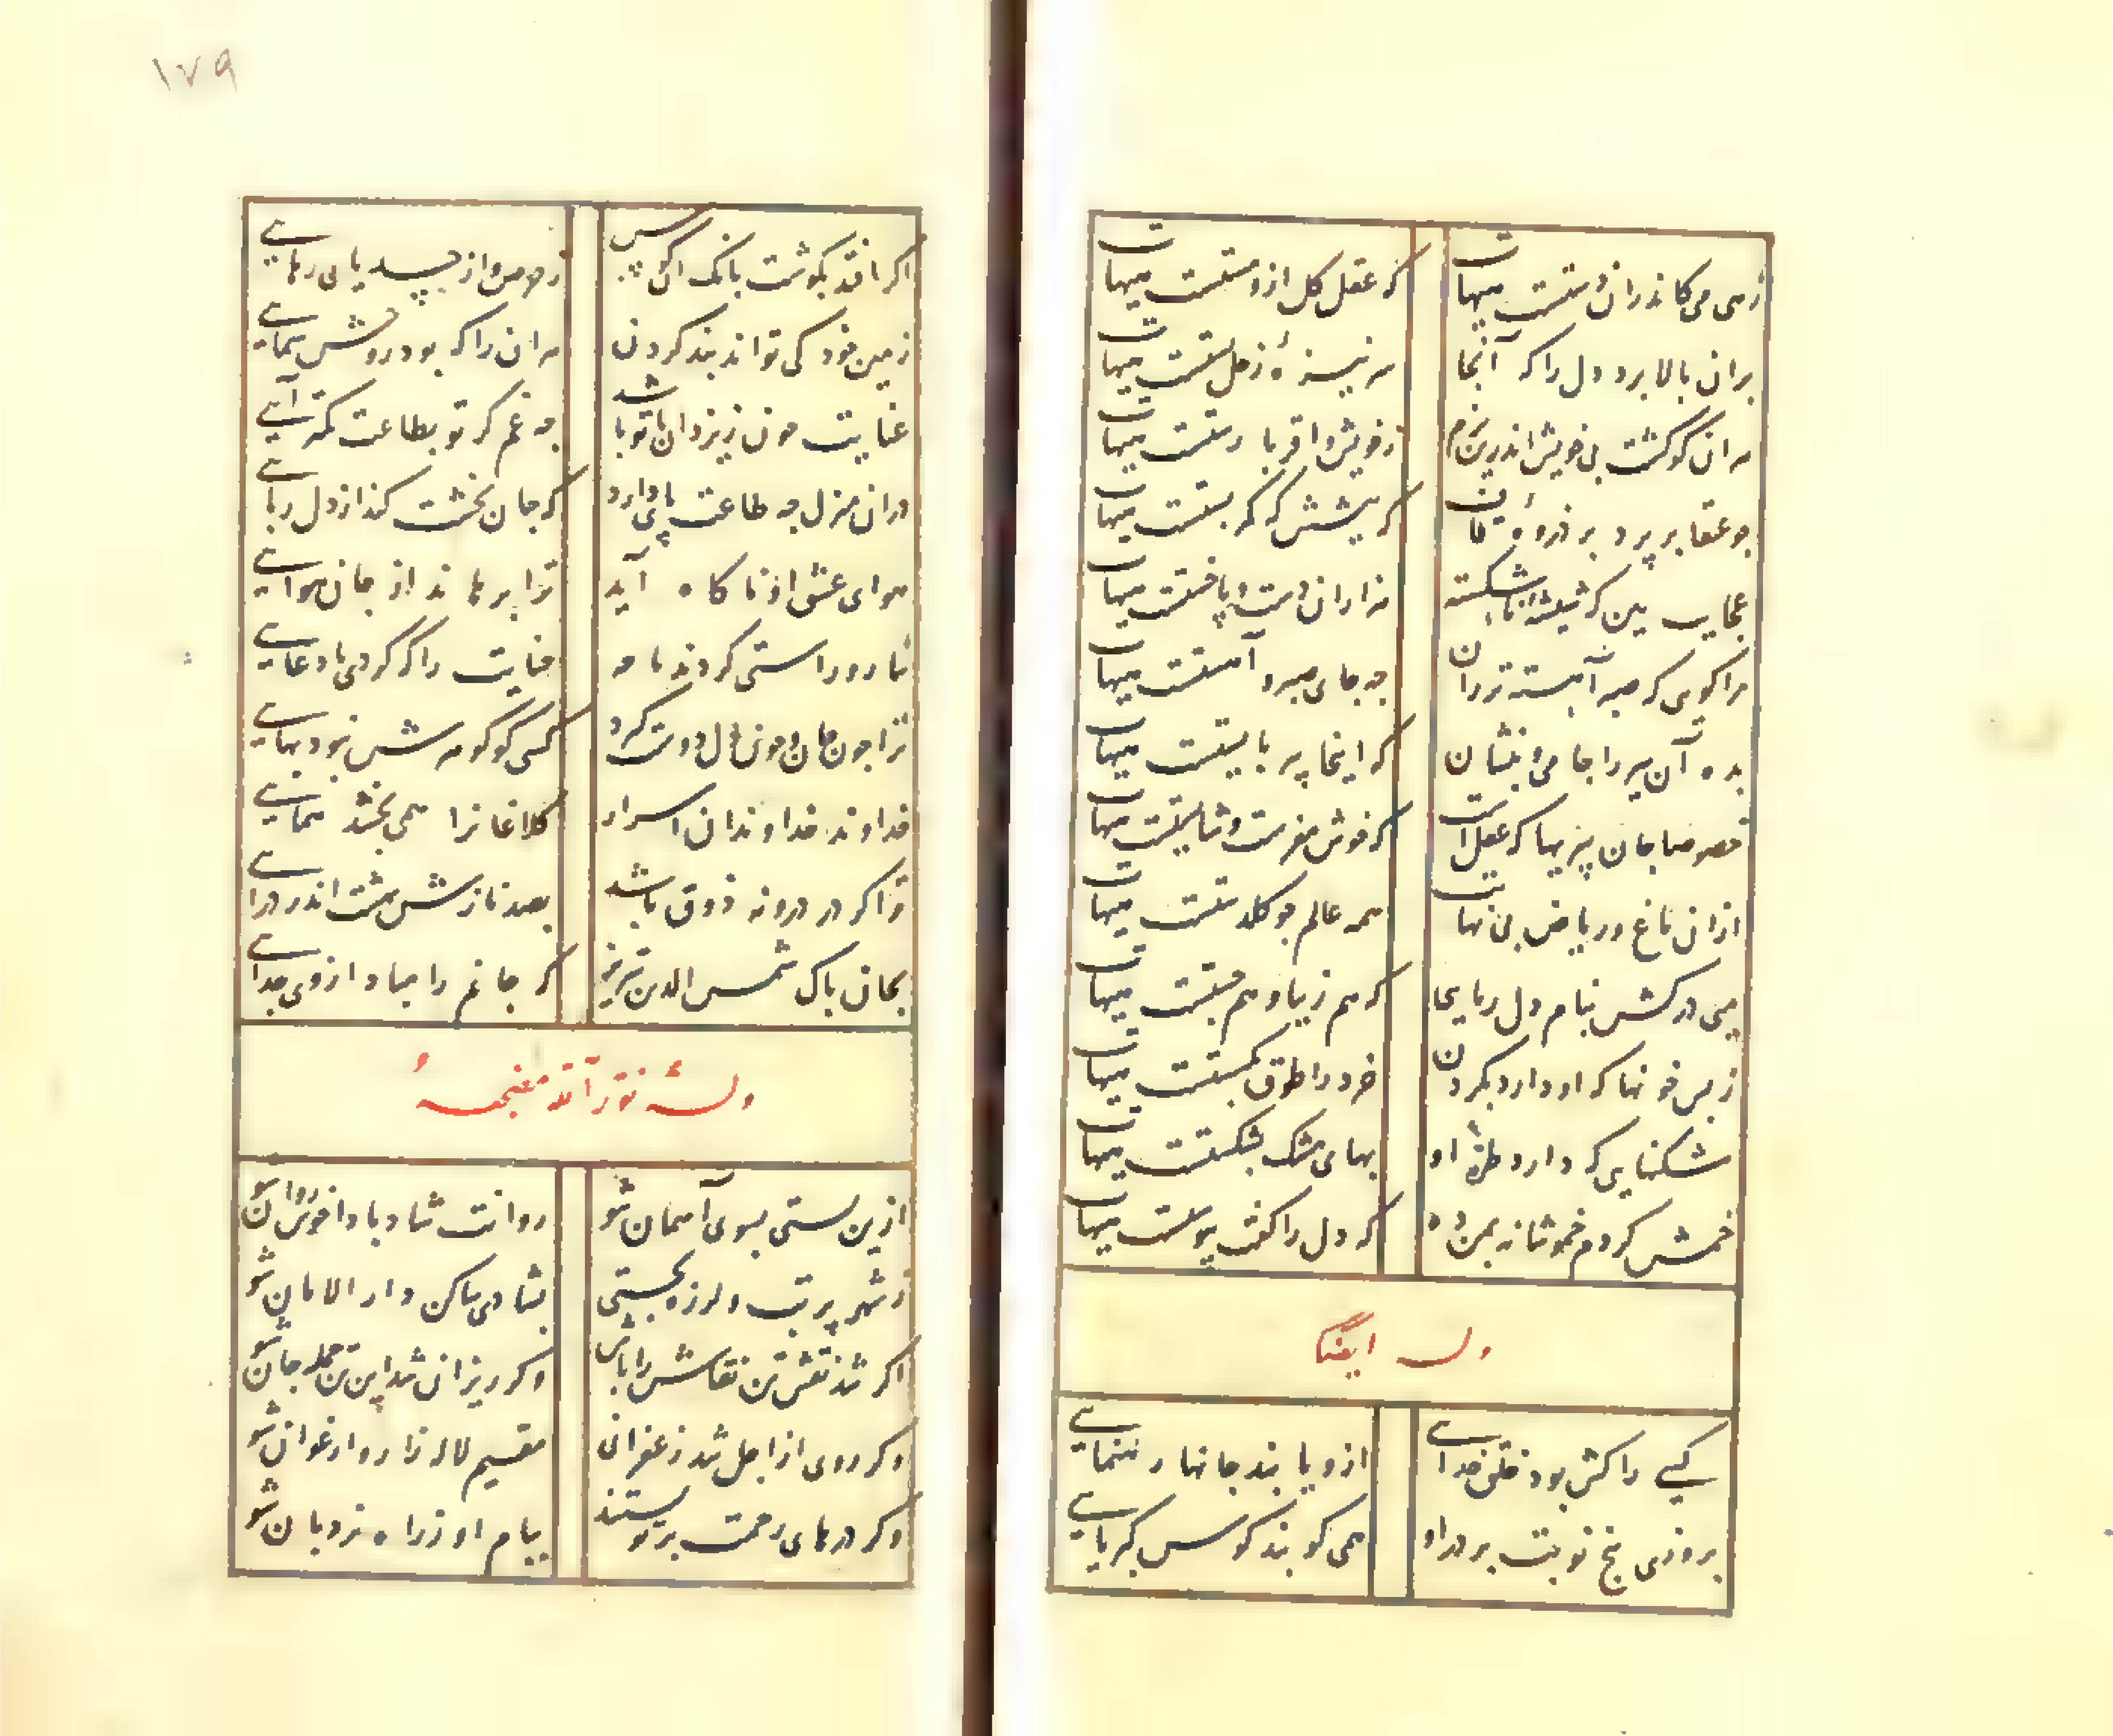 که عقل کل ازو مستست میهات
بران بالا برد دل را که آنجا
سر نیزه زحل پستست میهات
ز خویش و اقربا رستست میهات
چو عنقا بر پرد بر ذروه قاف
که پیشش که کمر بستست میهات
عجایب بین که شیشه ناشکسته
هزاران دست و پا خستست میهات
مرا گوی که صبر آهسته تر ران
چه جای صبر و آهستست میهات
بده آن پیر را جامی و بنشان
که اینجا پیر بایستست میهات
خصوصا جان پیریها که عقل است
که خوش مغزست و شایستست میهات
ازان باغ و ریاض بی نهایت
همه عالم چو گلدستست میهات
که هم زیبا و هم چستست میهات
ز بس خونها که او دارد بگردن
خرد را طوق بگسستست میهات
شکنهایی که دارد طره او
بهای مشک بشکستست میهات
خمش کردم خموشانه بمن ده
که دل را گفت پیوستست میهات
وله ایضا
کسی را کش بود خلق خدایی
ازو یابند جانها رهنمایی
بروزی پنج نوبت بر در او
همی کوبند کوس کبریایی
۱۷۹
اگر افتد بگوشت بانگ آن کوس
زمین خود کی تواند بند کردن
هر ان را که بود روش سمایی
عنایت چون ز یزدان با تو باشد
چه غم گر تو بطاعت کمتر آیی
دران منزل چه طاعت پای دارد
که جان بخشت کند از دل ربایی
هوای عشق او ناگاه آید
ترا برهاند از جان هوایی
جنایت را که کردی با دغایی
ترا چون جان و چون دل دوست گیرد
کسی کو گومهرش نبود بهایی
خداوند خداوندان اسرار
کلاغانرا همی بخشد همایی
ترا گر در درونه ذوق باشد
بصد نازش بهشت اندر درآیی
بجان پاک شمس الدین تبریز
که جانم را مبادا ازوی جدایی
ازین پستی بسوی آسمان شو
روانت شاد بادا خوش روان شو
ز شهر پر تب و لرزه بجستی
بشادی ساکن دار الامان شو
اگر شد نقش تن نقاش را باش
وگر ویران شد این تن جمله جان شو
وگر روی از اجل شد زعفرانی
مقیم لاله زار و ارغوان شو
وگر درهای رحمت بر تو بستند
ببام او ز راه نردبان شو